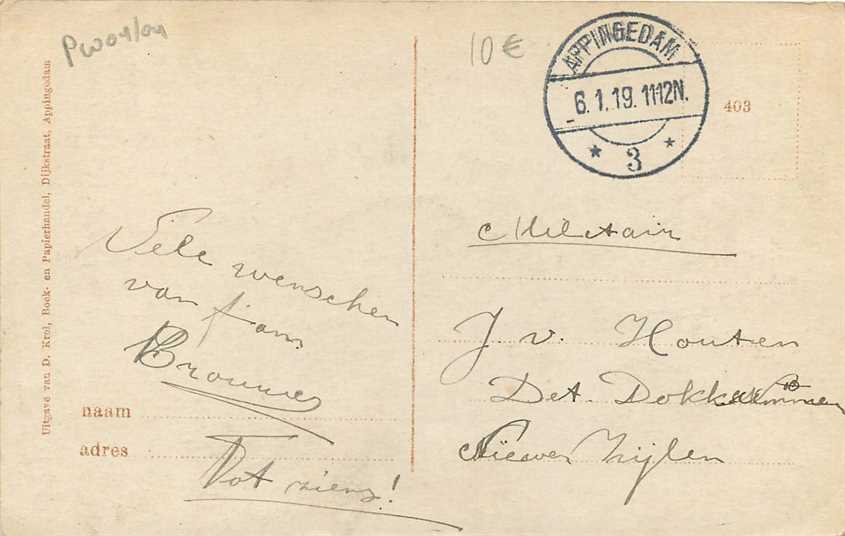 PW04/04
10 €
APPINGEDAM
6.1.19. 11-12N.
* 3 *
403
Uitgave van D. Krol, Boek- en Papierhandel, Dijkstraat, Appingedam
Vele wenschen
van fam
Brouwer
naam
adres
Tot ziens!
Militair
J v. Houten
Det. Dokkum
Nieuwe Zijlen